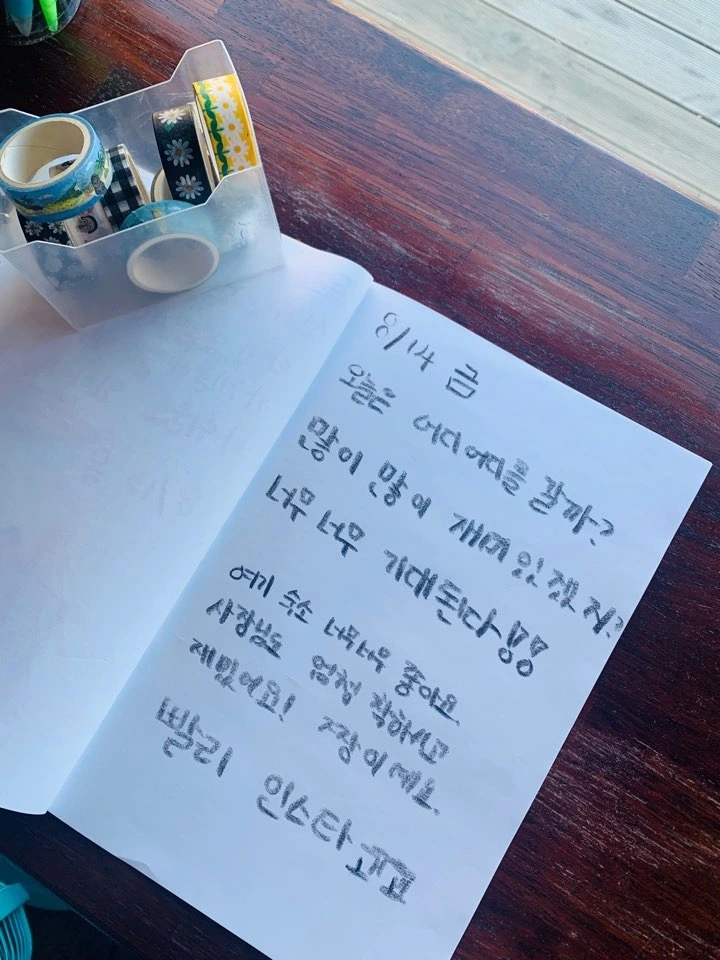 8/14 금
오늘은 어디어디를 갈까?
많이 많이 재미있겠지?
너무 너무 기대된다!!
여기 숙소 너무너무 좋아요.
사장님도 엄청 착하시고
재밌어요! 주장이에요.
빨리 인스타